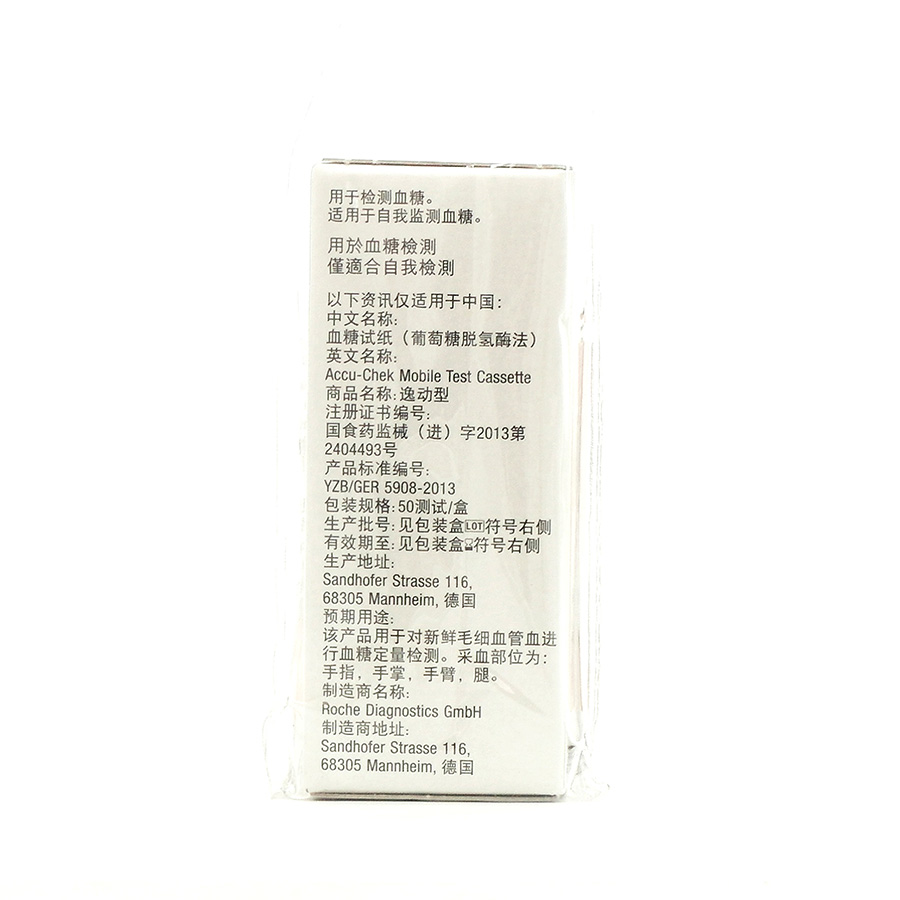 用于检测血糖。
适用于自我监测血糖。
用於血糖檢測
僅適合自我檢測
以下资讯仅适用于中国：
中文名称:
血糖试纸（葡萄糖脱氢酶法）
英文名称:
Accu-Chek Mobile Test Cassette
商品名称:逸动型
注册证书编号:
国食药监械（进）字2013第
2404493号
产品标准编号:
YZB/GER 5908-2013
包装规格:50测试/盒
生产批号:见包装盒LOT符号右侧
有效期至:见包装盒⌛符号右侧
生产地址:
Sandhofer Strasse 116,
68305 Mannheim, 德国
预期用途:
该产品用于对新鲜毛细血管血进
行血糖定量检测。采血部位为：
手指，手掌，手臂，腿。
制造商名称:
Roche Diagnostics GmbH
制造商地址:
Sandhofer Strasse 116,
68305 Mannheim, 德国